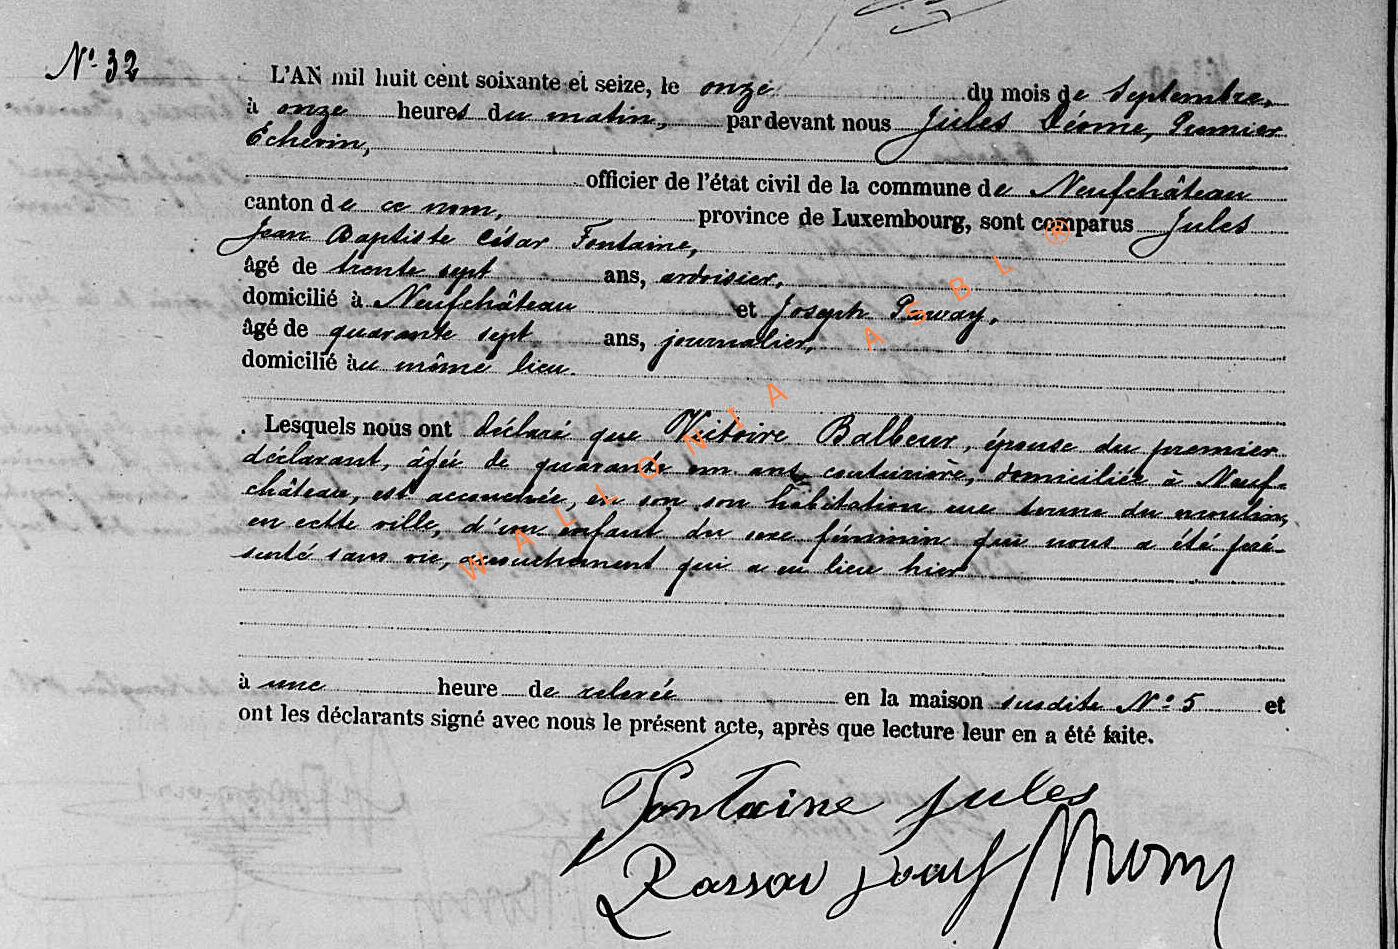 N° 32
L'AN mil huit cent soixante et seize, le onze du mois de Septembre,
à onze heures du matin, par devant nous Jules Déome, Premier
Échevin,
officier de l'état civil de la commune de Neufchâteau
canton de ce nom, province de Luxembourg, sont comparus Jules
Jean Baptiste César Fontaine,
âgé de trente sept ans, ardoisier,
domicilié à Neufchâteau et Joseph
âgé de quarante sept ans, journalier,
domicilié au même lieu.
Lesquels nous ont déclaré que Victoire Balbeur, épouse du premier
déclarant, âgée de quarante un ans couturière, domiciliée à Neuf-
château, est accouchée, en son son habitation rue terme du moulin,
en cette ville, d'un enfant du sexe féminin qui nous a été pré-
senté sans vie, accouchement qui a eu lieu hier
à une heure de relevée en la maison susdite N° 5 et
ont les déclarants signé avec nous le présent acte, après que lecture leur en a été faite.
Fontaine jules
WALLONIA ASBL ®